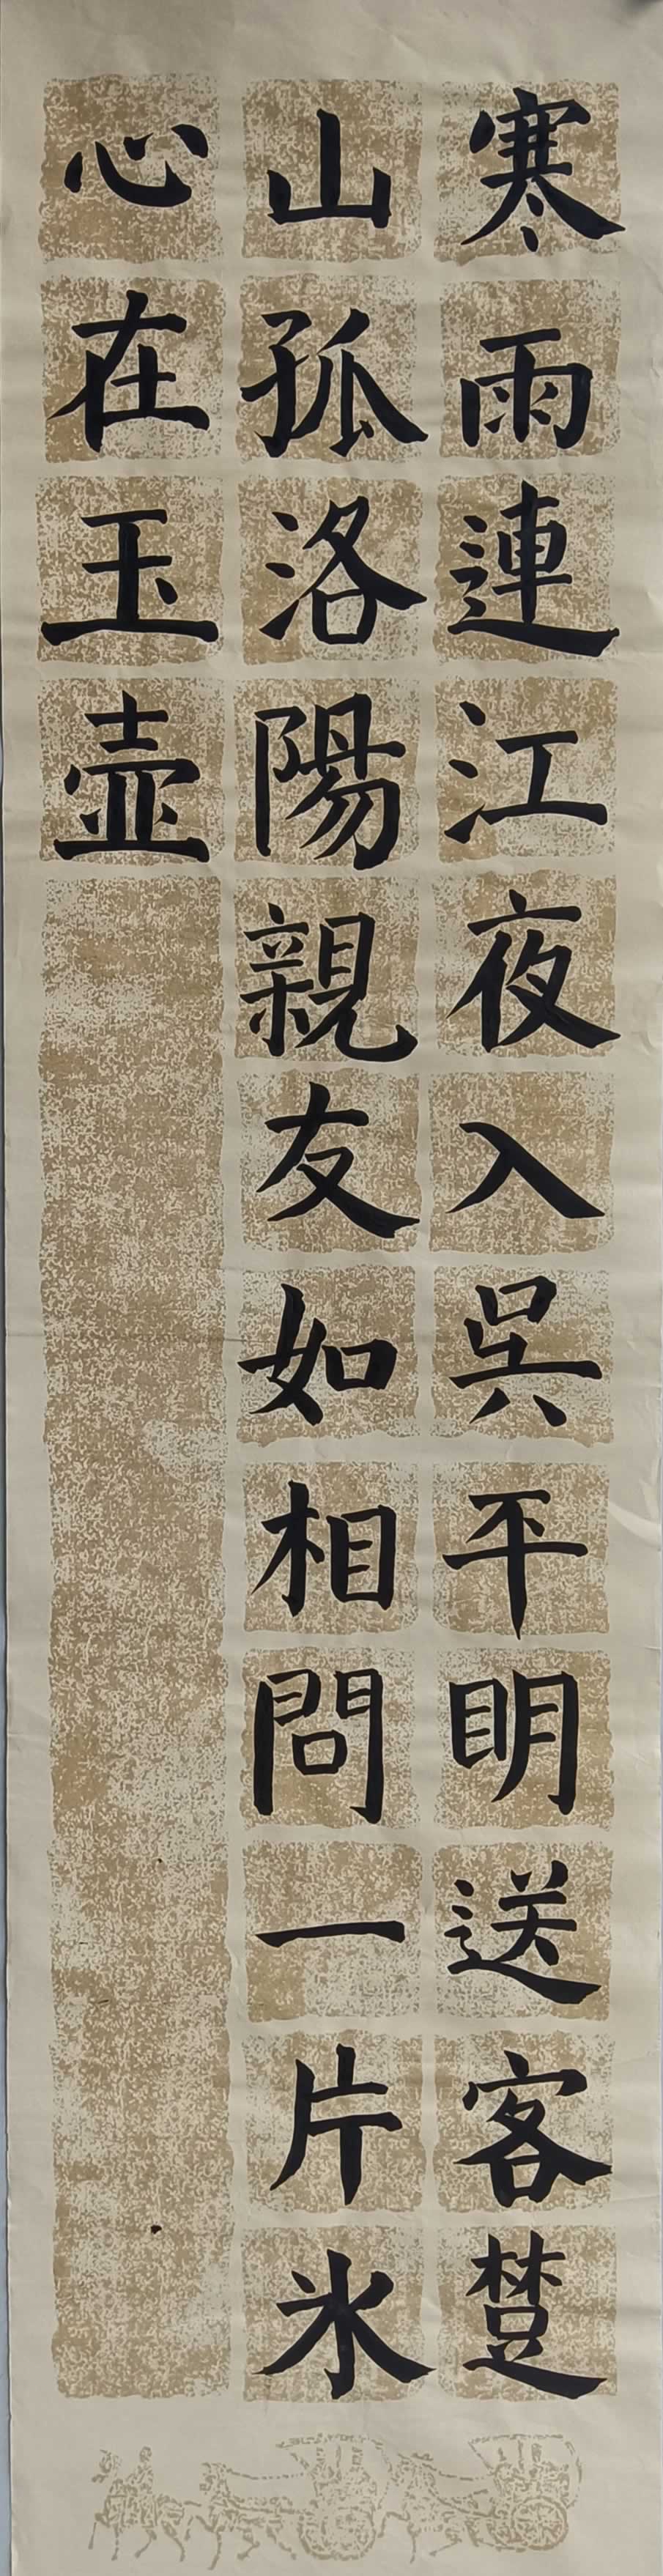 寒雨連江夜入吳平明送客楚
山孤洛陽親友如相問一片氷
心在玉壷